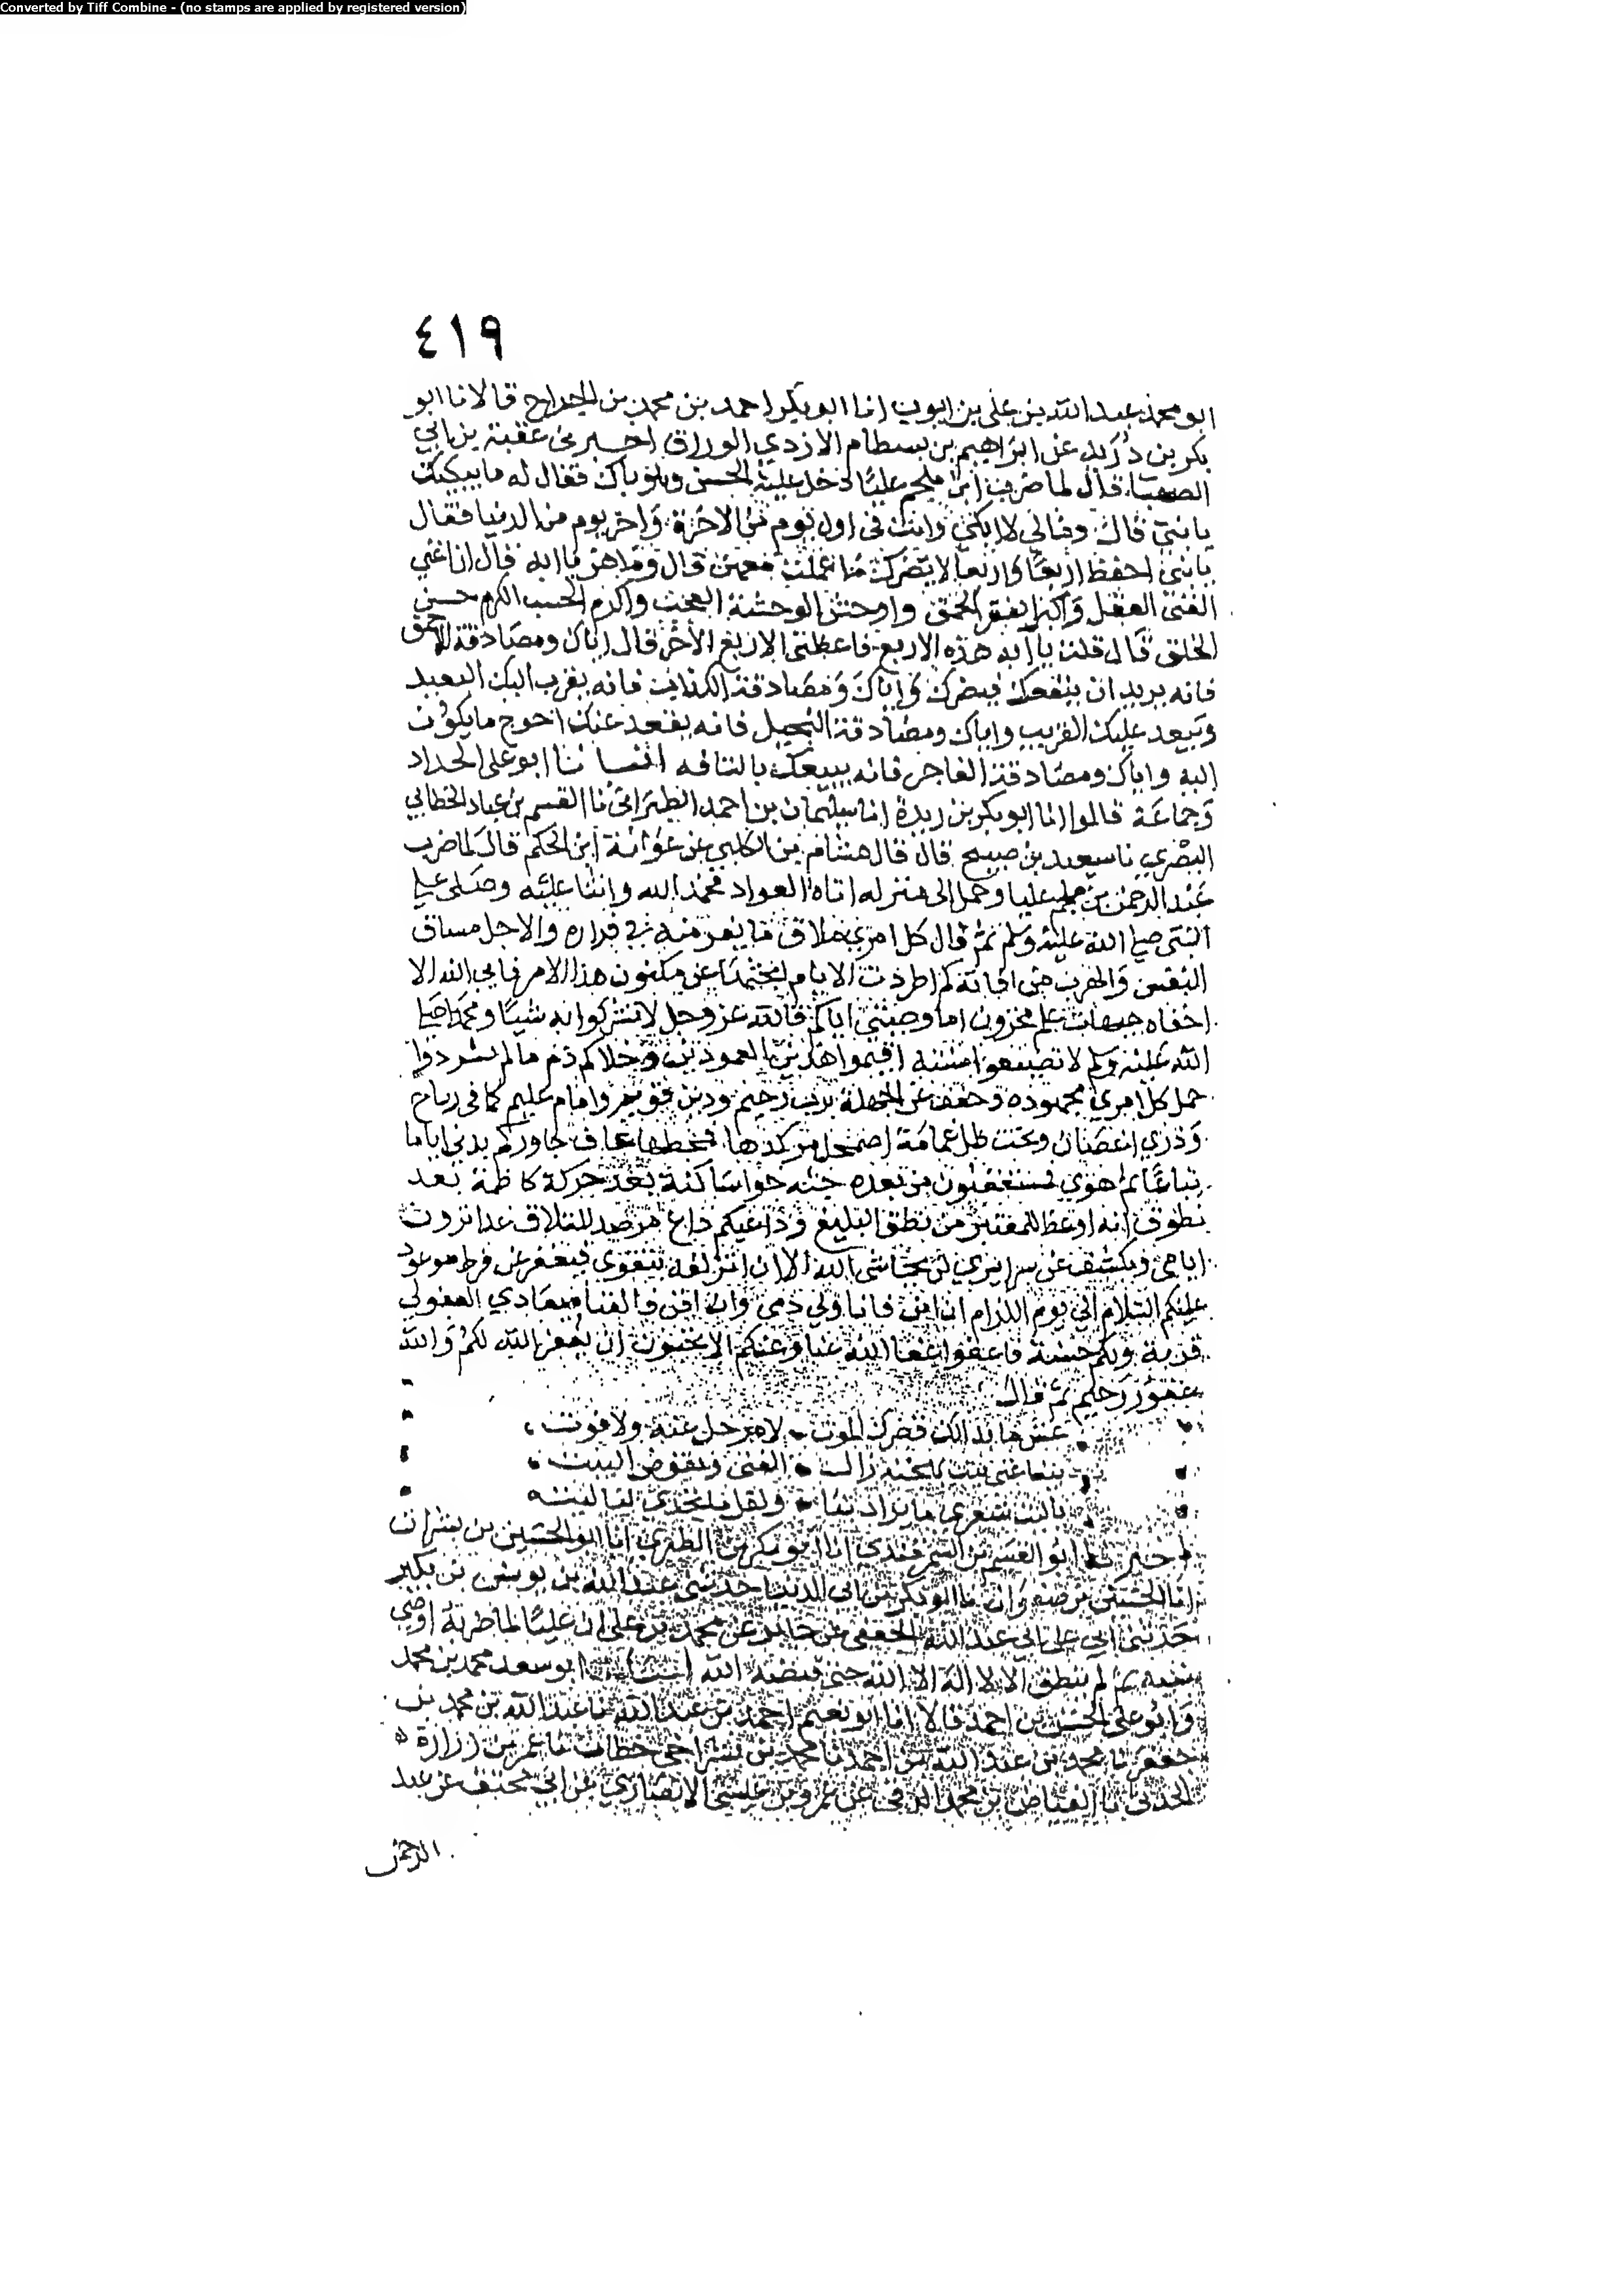 Converted by Tiff Combine - (no stamps are applied by registered version)
٤١٩
ابو محمد عبد الله بن على بن ايوب انا ابو بكر احمد بن محمد بن الجراح قالا نا ابو
بكر بن دريد عن ابراهيم بن بسطام الازدي الوراق اخبرنى عقبة بن ابي
الصهبا قال لما ضرب ابن ملجم عليا دخل عليه الحسن وهو باك فقال له ما يبكيك
يا بني قال ومالي لا ابكي وانت فى اول يوم من الاخرة واخر يوم من الدنيا فقال
يا بني احفظ اربعا واربعا لا يضرك ما عملت معهن قال وما هن يا ابه قال ان اغني
الغنى العقل واكبر الفقر الحمق واوحش الوحشة العجب واكرم الحسب الكرم حسن
الخلق قال قلت يا ابه هذه الاربع فاعطني الاربع الاخر قال اياك ومصادقة الاحمق
فانه يريد ان ينفعك فيضرك واياك ومصادقة الكذاب فانه يقرب اليك البعيد
ويبعد عليك القريب واياك ومصادقة البخيل فانه يقعد عنك احوج ما يكون
اليه واياك ومصادقة الفاجر فانه يبيعك بالتافه انبانا ابو على الحداد
وجماعة قالوا انا ابو بكر بن ريذة انا سليمان بن احمد الطبراني نا القسم بن عباد الخطابي
البصري نا سعيد بن صبيح قال قال هشام بن الكلبي عن عوانة ابن الحكم قال لما ضرب
عبد الرحمن بن ملجم عليا وحمل الى منزله اتاه العواد فحمد الله واثنا عليه وصلى على
النبى صلى الله عليه وسلم ثم قال كل امري ملاق ما يفر منه في فراره والاجل مساق
النفس والهرب من افاته كم اطردت الايام ابحثها عن مكنون هذا الامر فابى الله الا
اخفاه هيهات علم مخزون اما وصيتي اياكم فالله عز وجل لا تشركوا به شيا ومحمدا صلى
الله عليه وسلم لا تضيعوا سنته اقيموا هذين العمودين وخلاكم ذم ما لم تشردوا
حمل كل امري مجهوده وخفف عن الجهلة برب رحيم ودين قويم وامام عليم كنا في رياح
وذري اغصان وتحت ظل غمامة اضمحل مركدها فمخطها عاف جاوركم بدني اياما
تباعا ثم هوي فستعقبون من بعده جثة خواء ساكنة بعد حركة كاظمة بعد
نطوق انه اوعظ للمعتبرين من نطق البليغ وداعيكم داع مرصد للتلاق غدا ترون
ايامى ويكشف عن سرايري لن يحاشى الله الا ان اتزلفه بتقوى فيغفر عن فرط موعود
عليكم السلام الى يوم اللزام ان ابق فانا ولي دمى وان افن فالفنا ميعادي العفو لي
قربة ولكم حسنة فاعفوا عفا الله عنا وعنكم الا تحبون ان يغفر الله لكم والله
غفور رحيم ثم قال
عش ما بدا لك قصرك الموت لا مرحل عنه ولا فوت
بينا غنى بيت وبهجته زال الغنى وتقوض البيت
يا ليت شعري ما يراد بنا ولقل ما يجدي لنا ليت
اخبرنا ابو القسم بن السمرقندي انا ابو بكر بن الطبري انا ابو الحسين بن بشران
انا الحسين بن صفوان نا ابو بكر بن ابى الدنيا حدثنى عبد الله بن يونس بن بكير
حدثنى ابي عن ابي عبد الله الجعفى عن جابر عن محمد بن على ان عليا لما ضربه اوصى
بنيه ثم لم ينطق الا لا اله الا الله حتى قبضه الله انبانا ابو سعد محمد بن محمد
وابو على الحسن بن احمد قالا انا ابو نعيم احمد بن عبد الله نا عبد الله بن محمد بن
جعفر نا محمد بن عبد الله بن احمد نا محمد بن بشر اخى خطاب نا عمر بن زرارة
الحدثى نا الفياض بن محمد الرقى عن عمرو بن عيسى الانصاري عن ابي مخنف عن عبد
الرحمن